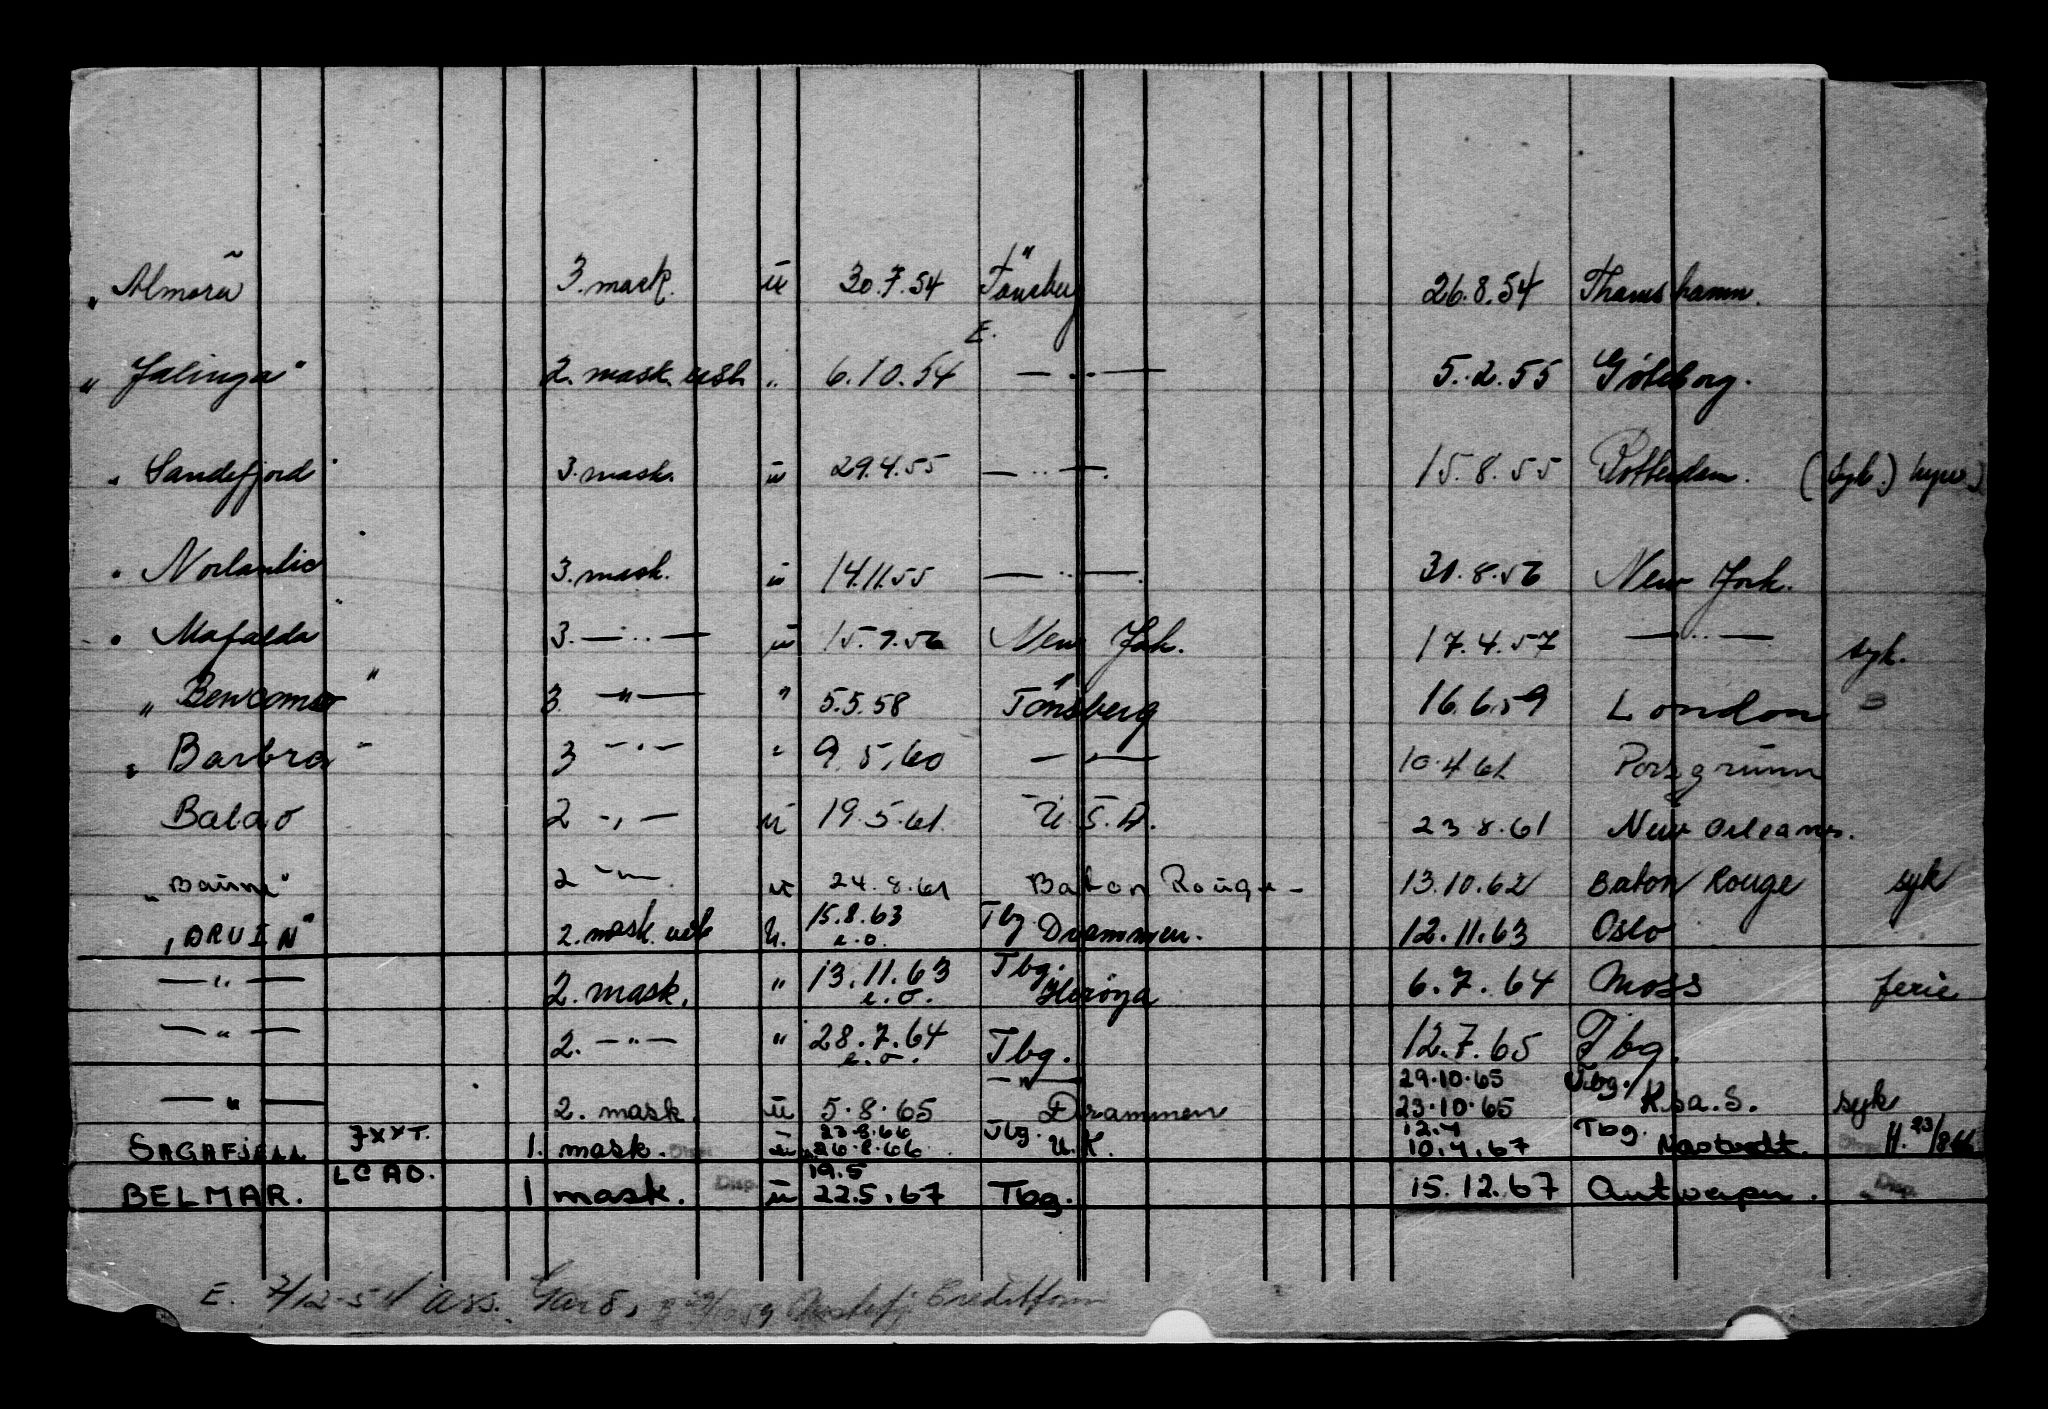 „ Almora 3. mask. u 30.7.54 Tønsberg 26.8.54 Thamshamn.
E.
„ Jalinga" 2. mask. usb. „ 6.10.54 — „ — 5.2.55 Göteborg.
„ Sandefjord" 3. mask. u 29.4.55 — „ — 15.8.55 Rotterdam. (syk.)
„ Norlantic" 3. mask. u 14.11.55 — „ — 30.8.56 New York.
„ Mafalda" 3. — „ — u 15.9.56 New York. 17.4.57 — „ — syk.
„ Bencomo" 3 — „ — " 5.5.58 Tønsberg 16.6.59 London
„ Barbra" 3 — „ — " 9.5.60 — „ — 10.4.61 Porsgrunn
Balao 2 — „ — u 19.5.61. U.S.A. 23.8.61 New Orleans.
„ Baune" 2 — „ — u 24.8.61 Baton Rouge — 13.10.62 Baton Rouge syk
„ DRUIN" 2. mask. usb u. 15.8.63 e.o. Tbg Drammen. 12.11.63 Oslo
— „ — 2. mask. " 13.11.63 e.o. Tbg. Herøya 6.7.64 Moss ferie
— „ — 2. — „ — " 28.7.64 e.o. Tbg. 12.7.65 Tbg.
— „ — 29.10.65 Tbg.
— „ — 2. mask. u 5.8.65 Drammen 23.10.65 K.sa.S. syk
23.8.66 Tbg. 12.4 Tbg.
SAGAFJELL JXXT. 1. mask. u 26.8.66 U.K. 10.4.67 H. 23/8 66
LCAO. 19.5
BELMAR. 1 mask. Disp. u 22.5.67 Tbg. 15.12.67 Antwerpen. Disp.
E. 7/12-54 ass. Creditform